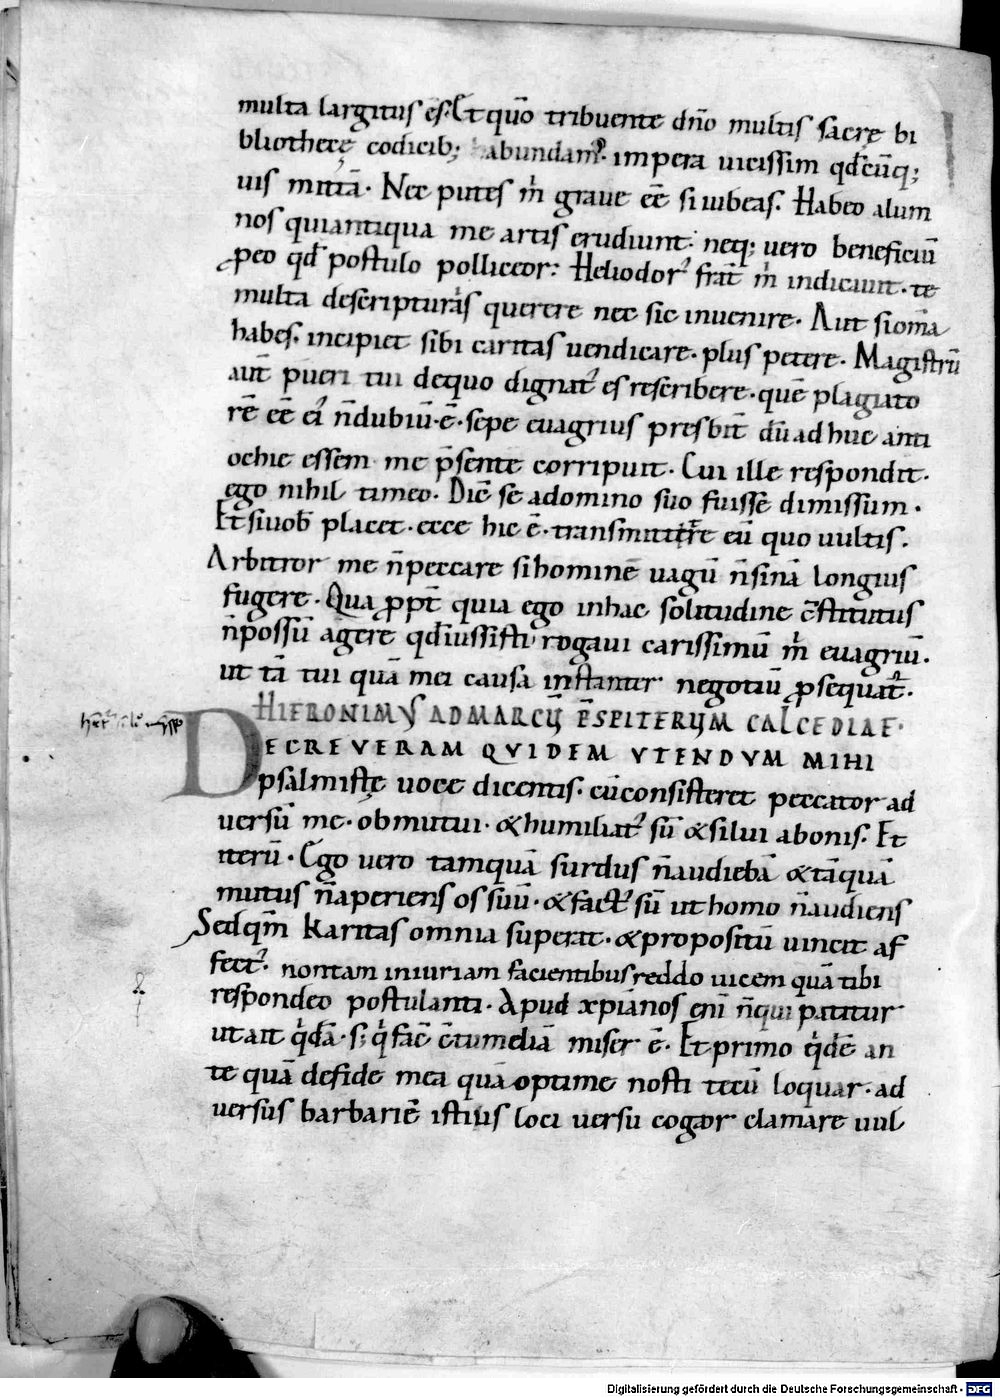 multa largitus eś. Et quō tribuente dn̄o multis sacrę bi
bliothecę codicib; habundam᷒. impera uicissim qđcūq;
uis mittā. Nec putes m̄ graue eē si iubeas. Habeo alum
nos qui antiqua me artis erudiunt. neq; uero beneficiū
ꝓeo qđ postulo polliceor. Heliodor᷒ frat̄ m̄ indicauit. te
multa descripturaŕs querere nec sic inuenire. Aut si om̄a
habes. incipiet sibi caritas uendicare. plus petere. Magistrū
aut̄ pueri tui dequo dignat᷒ es rescribere. quē plagiato
rē eē ei᷒ n̄ dubiū. ē. sepe euagrius presbit̄ dū ad huc anti
ochie essem me p̄sente corripuit. Cui ille respondit.
ego nihil timeo. Dic̄ se adomino suo fuissē dimissum.
Et siuob̄ placet. ecce hic ē. transmittite eū quo uultis.
Arbitror me n̄ peccare si hominē uagū n̄ sinā longius
fugere. Qua ꝓpt̄ quia ego inhac solitudine c̄stitutus
n̄ possū agere qđ iussisti rogaui carissimū m̄ euagriū.
ut tā tui quā mei causa instanter negotiū ꝓsequat᷒.
HIERONIMUS AD MARCU̅ P̄SPITERUM CALCEDIAE.
DECREVERAM QVIDEM VTENDVM MIHI
psalmistę uoce dicentis. cū consisteret peccator ad
uersū me. obmutui. & humiliat᷒ sū & silui abonis. Et
iterū. Ego uero tamquā surdus n̄ audiebā & tāquā
mutus n̄ aperiens os suū. & fact᷒ sū ut homo n̄ audiens
Sed qm̄ karitas omnia superat. & propositū uincit af
fect᷒. non tam iniuriam facientibus reddo uicem quā tibi
respondeo postulanti. Apud xp̄ianos enī n̄ qui patitur
ut ait q̇dā. s; q̇ fac̄ c̄tumeliā miser ē. Et primo q̇dē an
te quā defide mea quā optime nosti tecū loquar. ad
uersus barbariē istius loci uersu cogor clamare uul
Digitalisierung gefördert durch die Deutsche Forschungsgemeinschaft - DFG